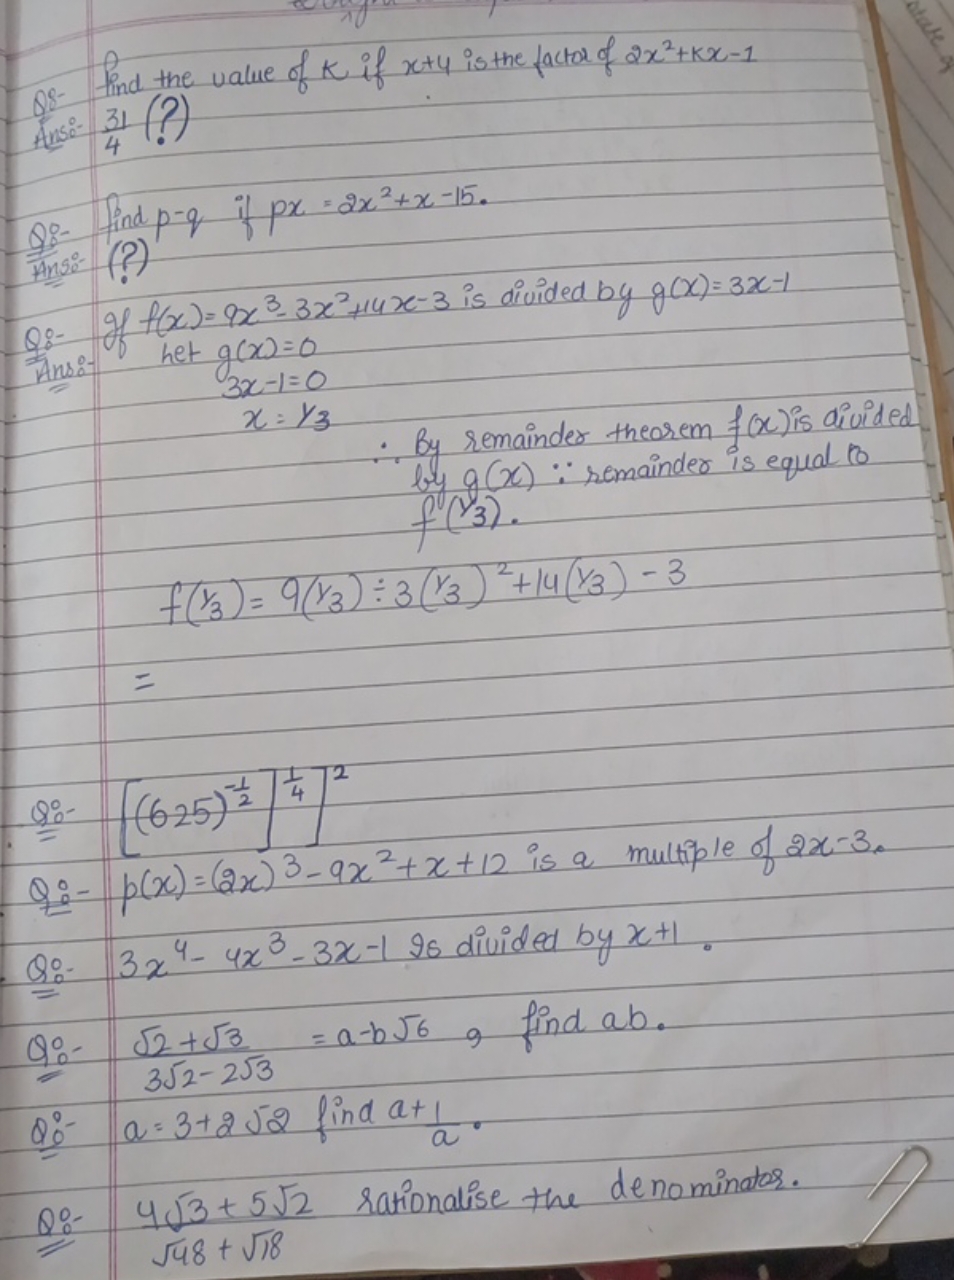 Q:- Find the value of K if x+4 is the factor of 2x²+Kx-1
Ans:- 31/4 (?)
Q:- find p-q if px = 2x²+x-15.
Ans:- (?)
Q:- If f(x)=9x³-3x²+14x-3 is divided by g(x)=3x-1
Ans:- het g(x)=0
3x-1=0
x = 1/3
∴ By remainder theorem f(x) is divided
by g(x) ∵ remainder is equal to
f(1/3).
f(1/3) = 9(1/3) ÷ 3(1/3)² + 14(1/3) - 3
=
Q:- [(625)^-1/2]^1/4]²
Q:- p(x)=(2x)³-9x²+x+12 is a multiple of 2x-3.
Q:- 3x⁴-4x³-3x-1 Is divided by x+1.
Q:- √2+√3/3√2-2√3 = a-b√6, find ab.
Q:- a=3+2√2 find a+1/a.
Q:- 4√3+5√2/√48+√18 rationalise the denominator.